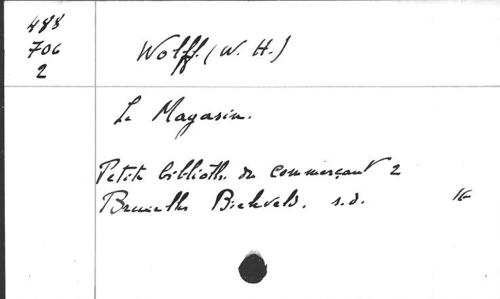 488
706
2
Wolff. (W. H.)
Le Magasin.
Petite biblioth. du commerçant 2
Bruxelles Bielveld. s.d. 16